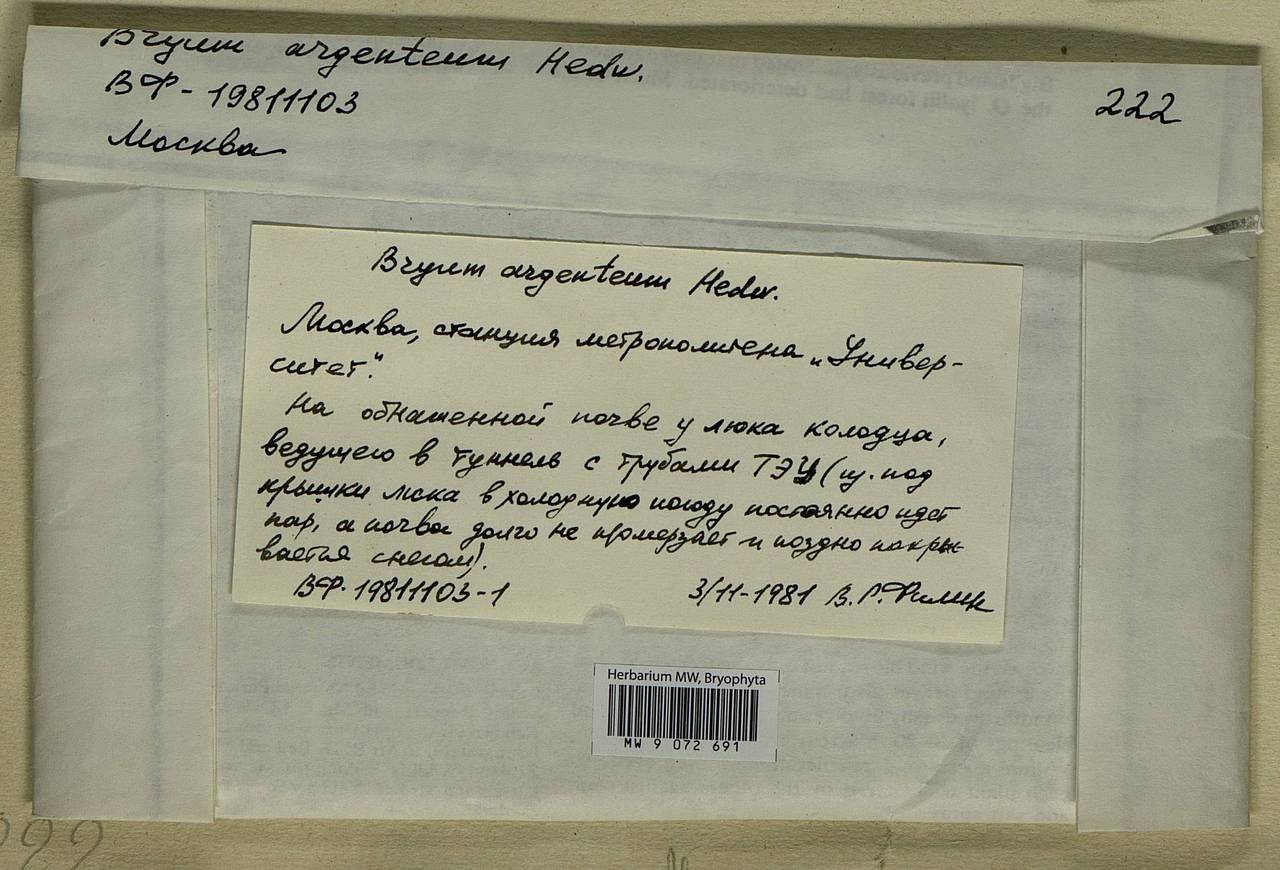 Bryum argenteum Hedw.
ВФ - 19811103
222
Москва
Bryum argenteum Hedw.
Москва, станция метрополитена „Универ-
ситет".
На обнаженной почве у люка колодца,
ведущего в туннель с трубами ТЭЦ (из-под
крышки люка в холодную погоду постоянно идет
пар, а почва долго не промерзает и поздно покры-
вается снегом).
ВФ-19811103-1
3/11-1981 В.Р. Филин
Herbarium MW, Bryophyta
MW 9 072 691